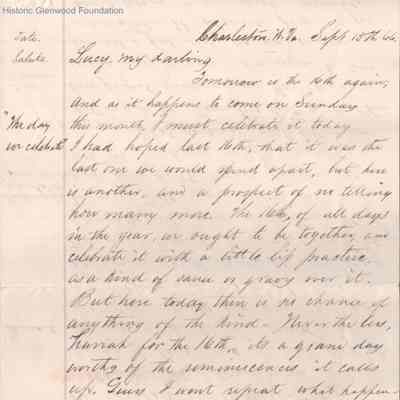 Historic Glenwood Foundation
Charleston, W. Va. Sept 15th 66.
Date.
Salute. Lucy, my darling,
Tomorrow is the 16th again,
And as it happens to come on Sunday
"The day this month, I must celebrate it today
we celebrate" I had hoped last 16th, that it was the
last one we would spend apart, but here
is another, and a prospect of no telling
how many more. The 16th, of all days
in the year, we ought to be together, and
celebrate it with a little lip practice,
as a kind of sauce or gravy over it.
But here today there is no chance of
anything of the kind - Nevertheless,
Hurrah for the 16th. Its a grand day
worthy of the reminiscences it calls
up. Guess I wont repeat what happen